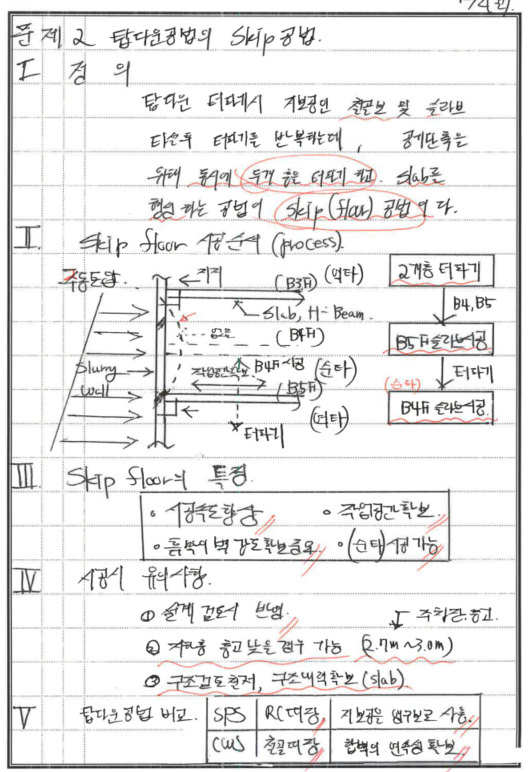 74회.
문제 2 탑다운공법의 Skip 공법.
I 정의
탑다운 터파기시 지보공인 철골보 및 슬라브
타설후 터파기를 반복하는데, 공기단축을
위해 동시에 두개 층을 터파기 하고. slab를
형성 하는 공법이 Skip (floor) 공법이다.
II. Skip floor 시공순서 (process).
주동토압.
지지
(B3F) (역타)
Slab, H-Beam.
(B4F)
작업공간확보.
B4F 시공 (순타)
(B5F)
(역타)
터파기
Slurry
wall
2개층 터파기
B4, B5
B5F 슬라브시공
터파기
(순타)
B4F 슬라브시공.
III Skip floor의 특징.
• 시공속도향상 • 작업공간확보.
• 흙막이벽 강도확보중요. • (순타)시공 가능
IV 시공시 유의사항.
① 설계 검토시 반영.
주차장층고.
② 지하층 층고 낮을 경우 가능 (2.7m ~3.0m)
③ 구조검토한저, 구조내력확보 (slab)
V 탑다운공법 비교.
SPS RC대장. 지보공은 영구보로 사용.
CWS 철골띠장 합벽의 연속성 확보.